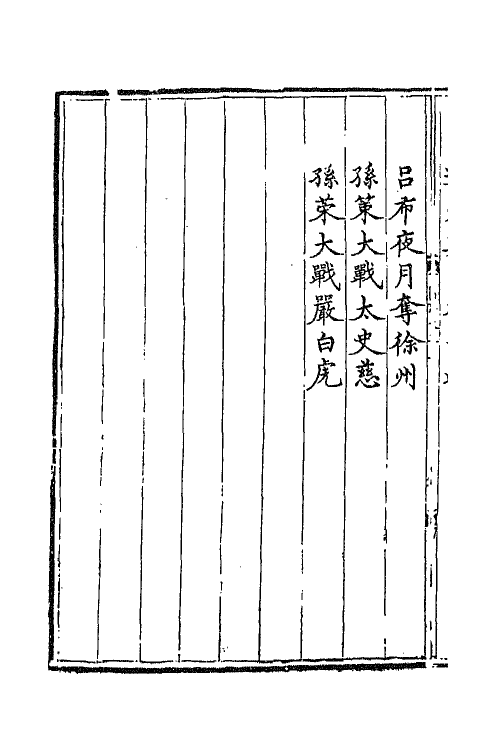 呂布夜月奪徐州
孫策大戰太史慈
孫策大戰嚴白虎